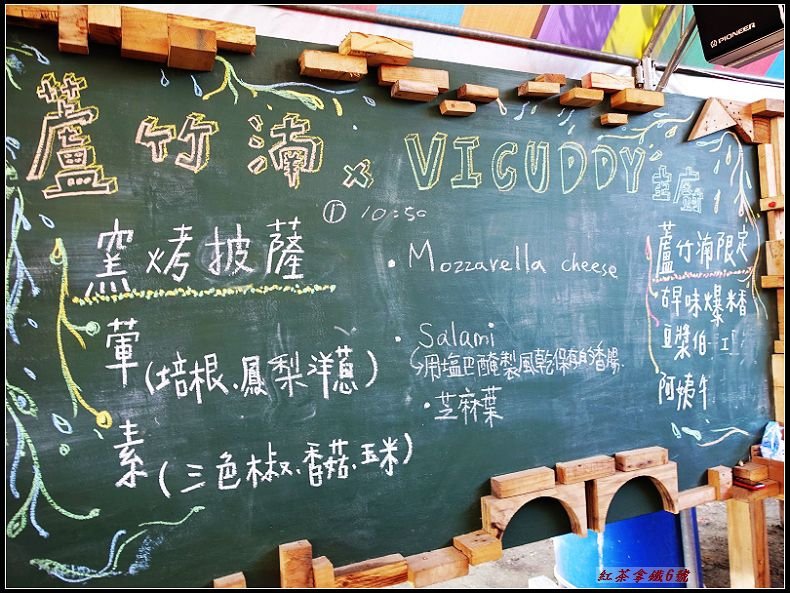 蘆竹湳 x VICUDDY 主廚
① 10:50
窯烤披薩
葷(培根、鳳梨洋蔥)
素(三色椒、香菇、玉米)
• Mozzarella cheese
• Salami
↳用塩巴醃製風乾保
• 芝麻葉
蘆竹湳限定
古早味爆米香
豆漿伯
阿姨牛
PIONEER
紅茶拿鐵6號